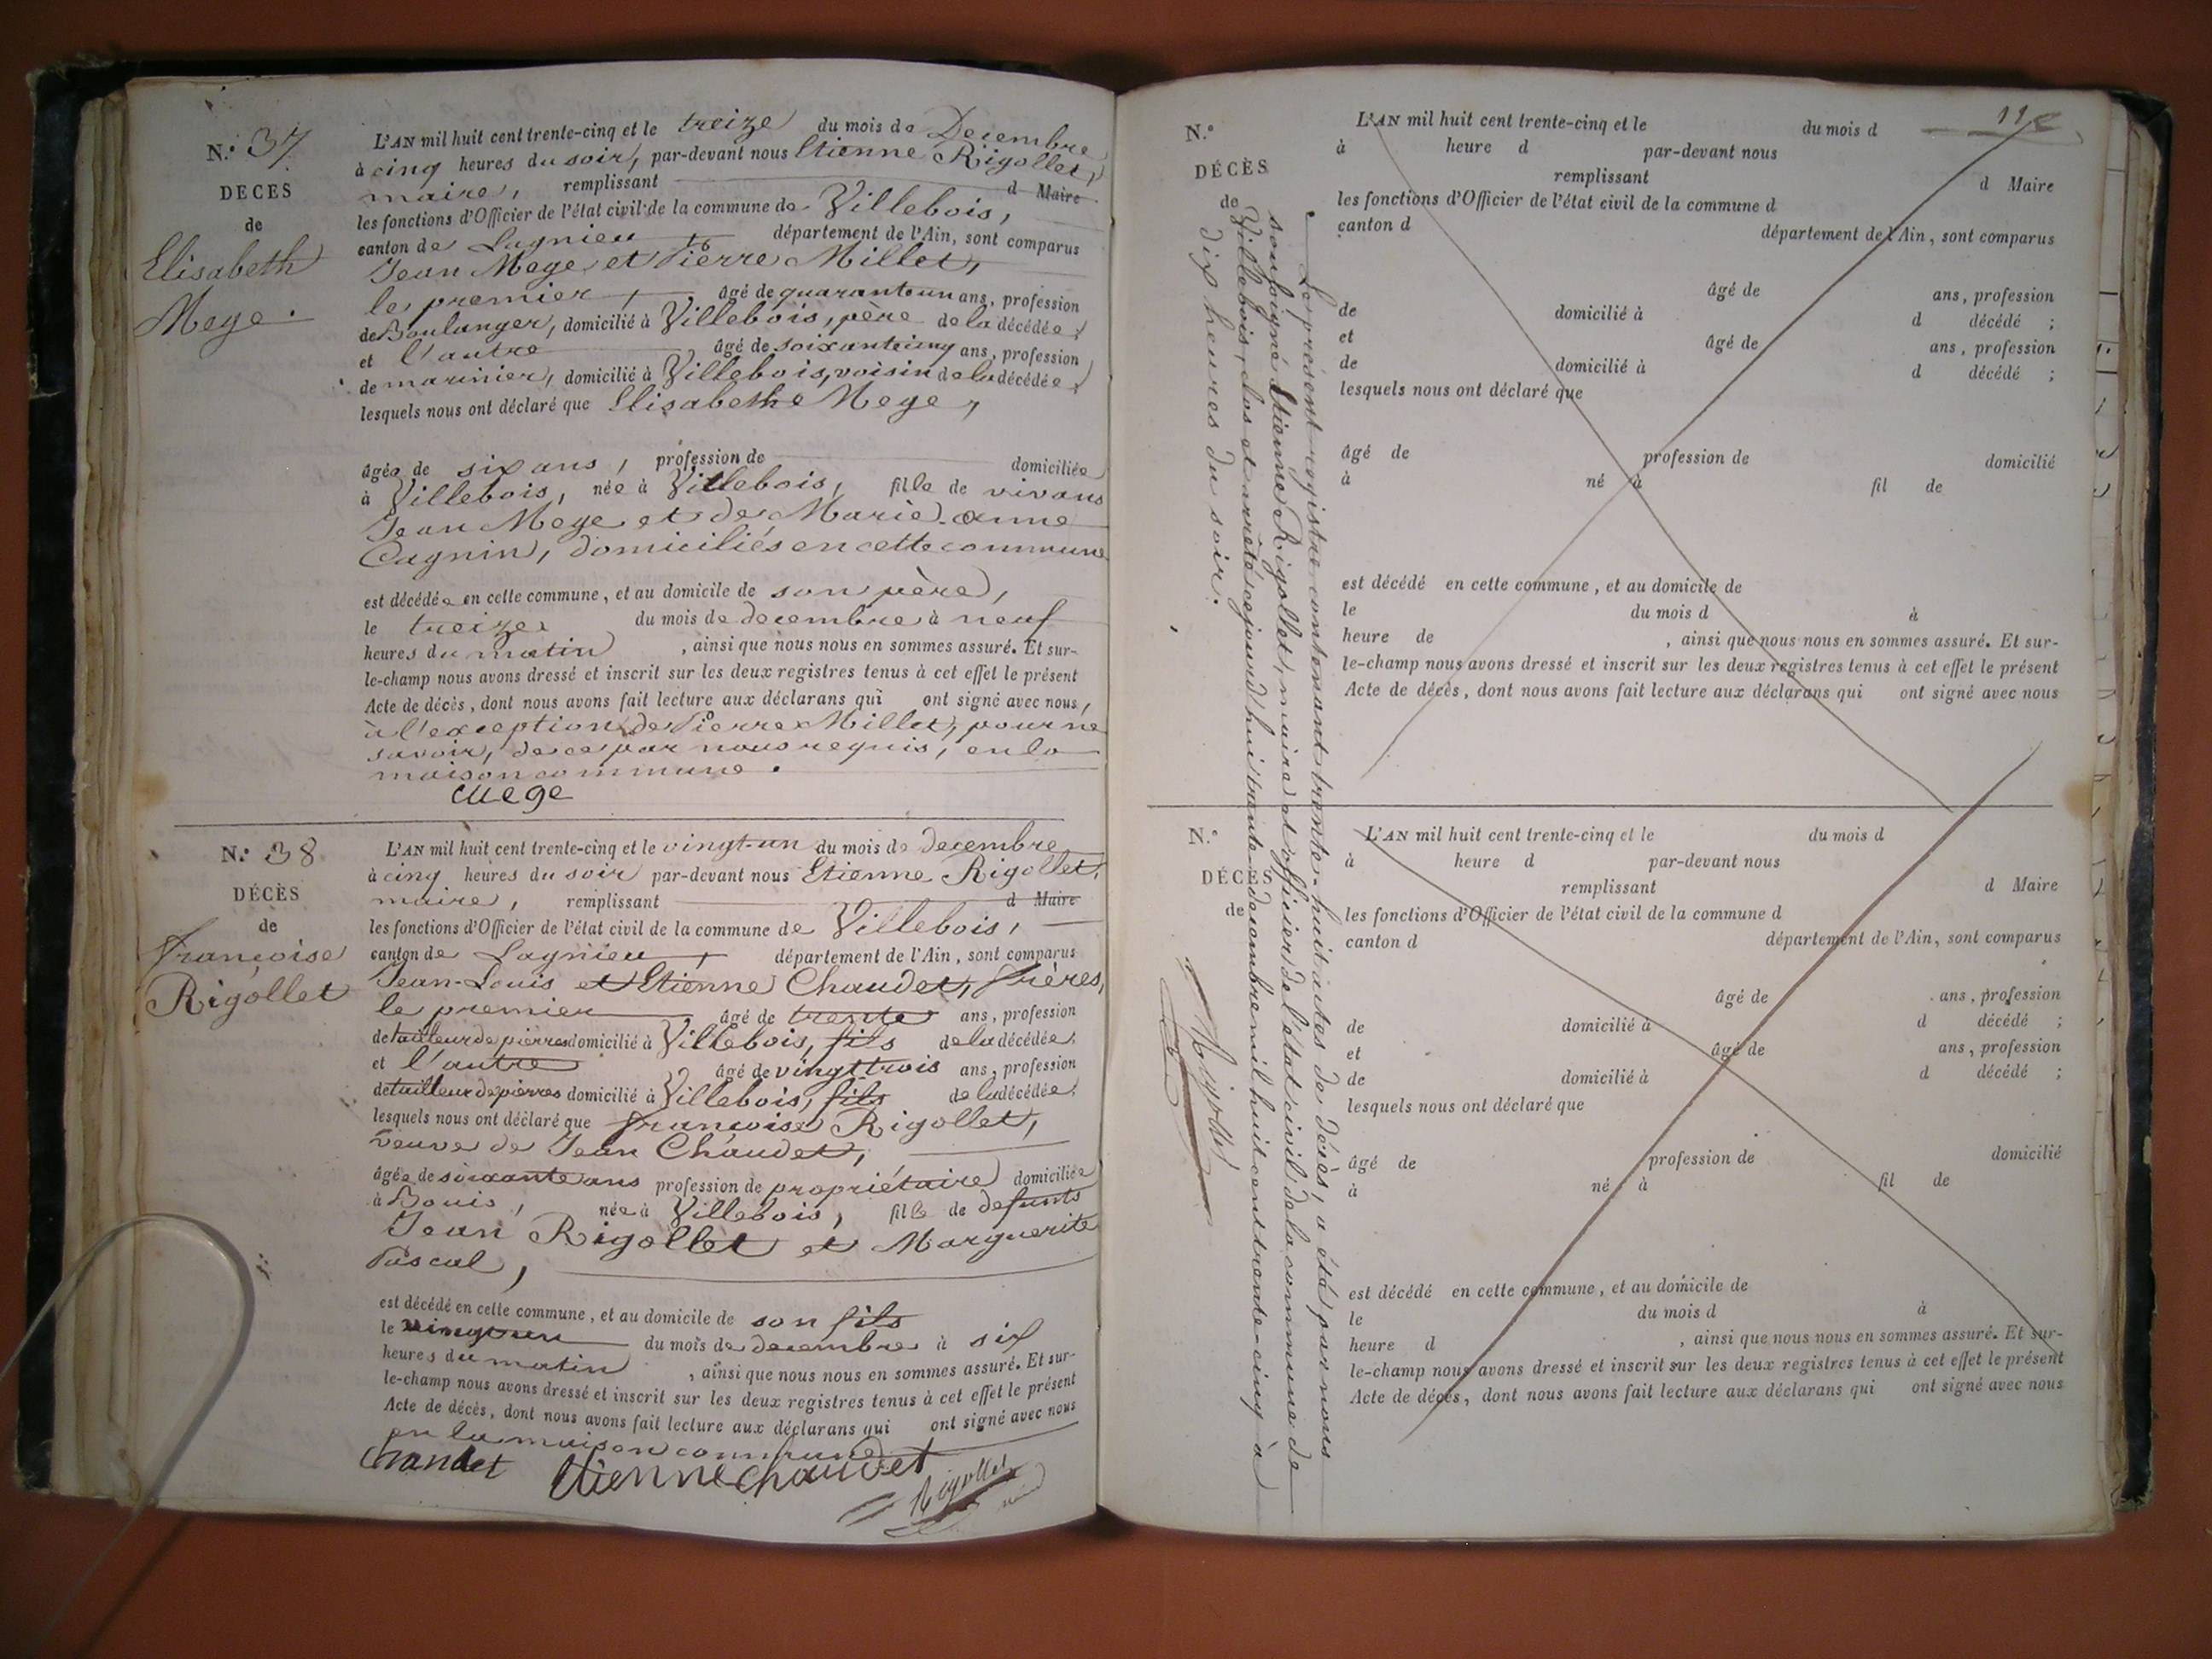 N.º 37
DÉCÈS
de
Elisabeth
Mege.
L'AN mil huit cent trente-cinq et le treize du mois de Decembre
à cinq heures du soir, par-devant nous Etienne Rigollet,
maire, remplissant d Maire
les fonctions d'Officier de l'état civil de la commune de Villebois,
canton de Lagnieu département de l'Ain, sont comparus
Jean Mege et Pierre Millet,
le premier, âgé de quarante un ans, profession
de Boulanger, domicilié à Villebois, père de la décédée;
et l'autre âgé de soixante cinq ans, profession
de marinier, domicilié à Villebois, voisin de la décédée;
lesquels nous ont déclaré que Elisabethe Mege,
âgée de six ans, profession de domiciliée
à Villebois, née à Villebois, fille de vivans
Jean Mege et de Marie-anne
Cagnin, domiciliés en cette commune
est décédée en cette commune, et au domicile de son père,
le treize du mois de decembre à neuf
heures du matin, ainsi que nous nous en sommes assuré. Et sur-
le-champ nous avons dressé et inscrit sur les deux registres tenus à cet effet le présent
Acte de décès, dont nous avons fait lecture aux déclarans qui ont signé avec nous,
à l'exception de Pierre Millet, pour ne
savoir, de ce par nous requis, en la
maison commune.
Mege
N.º 38
DÉCÈS
de
françoise
Rigollet
L'AN mil huit cent trente-cinq et le vingt-un du mois de decembre
à cinq heures du soir par-devant nous Etienne Rigollet,
maire, remplissant d Maire
les fonctions d'Officier de l'état civil de la commune de Villebois,
canton de Lagnieu, département de l'Ain, sont comparus
Jean-Louis et Etienne Chaudet, frères,
le premier âgé de trente ans, profession
de tailleur de pierres domicilié à Villebois, fils de la décédée;
et l'autre âgé de vingt trois ans, profession
de tailleur de pierres domicilié à Villebois, fils de la décédée;
lesquels nous ont déclaré que françoise Rigollet,
veuve de Jean Chaudet,
âgée de soixante ans profession de propriétaire domiciliée
à Bouis, née à Villebois, fille de defunts
Jean Rigollet et Marguerite
Pascal,
est décédé en cette commune, et au domicile de son fils
le vingt un du mois de decembre à six
heures du matin, ainsi que nous nous en sommes assuré. Et sur-
le-champ nous avons dressé et inscrit sur les deux registres tenus à cet effet le présent
Acte de décès, dont nous avons fait lecture aux déclarans qui ont signé avec nous
en la maison commune
Chaudet Etienne chaudet
Rigollet
Le présent registre contenant trente-huit actes de décès, a été par nous
soussigné Etienne Rigollet, maire et officier de l'état civil de la commune de
Villebois, clos et arrêté cejourd'hui trente-un decembre mil huit cent trente-cinq à
dix heures du soir.
Rigollet
N.º
DÉCÈS
de
L'AN mil huit cent trente-cinq et le du mois d
à heure d par-devant nous
remplissant d Maire
les fonctions d'Officier de l'état civil de la commune d
canton d département de l'Ain, sont comparus
âgé de ans, profession
de domicilié à d décédé ;
et âgé de ans, profession
de domicilié à d décédé ;
lesquels nous ont déclaré que
âgé de profession de domicilié
à né à fil de
est décédé en cette commune, et au domicile de
le du mois d à
heure de , ainsi que nous nous en sommes assuré. Et sur-
le-champ nous avons dressé et inscrit sur les deux registres tenus à cet effet le présent
Acte de décès, dont nous avons fait lecture aux déclarans qui ont signé avec nous
N.º
DÉCÈS
de
L'AN mil huit cent trente-cinq et le du mois d
à heure d par-devant nous
remplissant d Maire
les fonctions d'Officier de l'état civil de la commune d
canton d département de l'Ain, sont comparus
âgé de ans, profession
de domicilié à d décédé ;
et âgé de ans, profession
de domicilié à d décédé ;
lesquels nous ont déclaré que
âgé de profession de domicilié
à né à fil de
est décédé en cette commune, et au domicile de
le du mois d à
heure d , ainsi que nous nous en sommes assuré. Et sur-
le-champ nous avons dressé et inscrit sur les deux registres tenus à cet effet le présent
Acte de décès, dont nous avons fait lecture aux déclarans qui ont signé avec nous